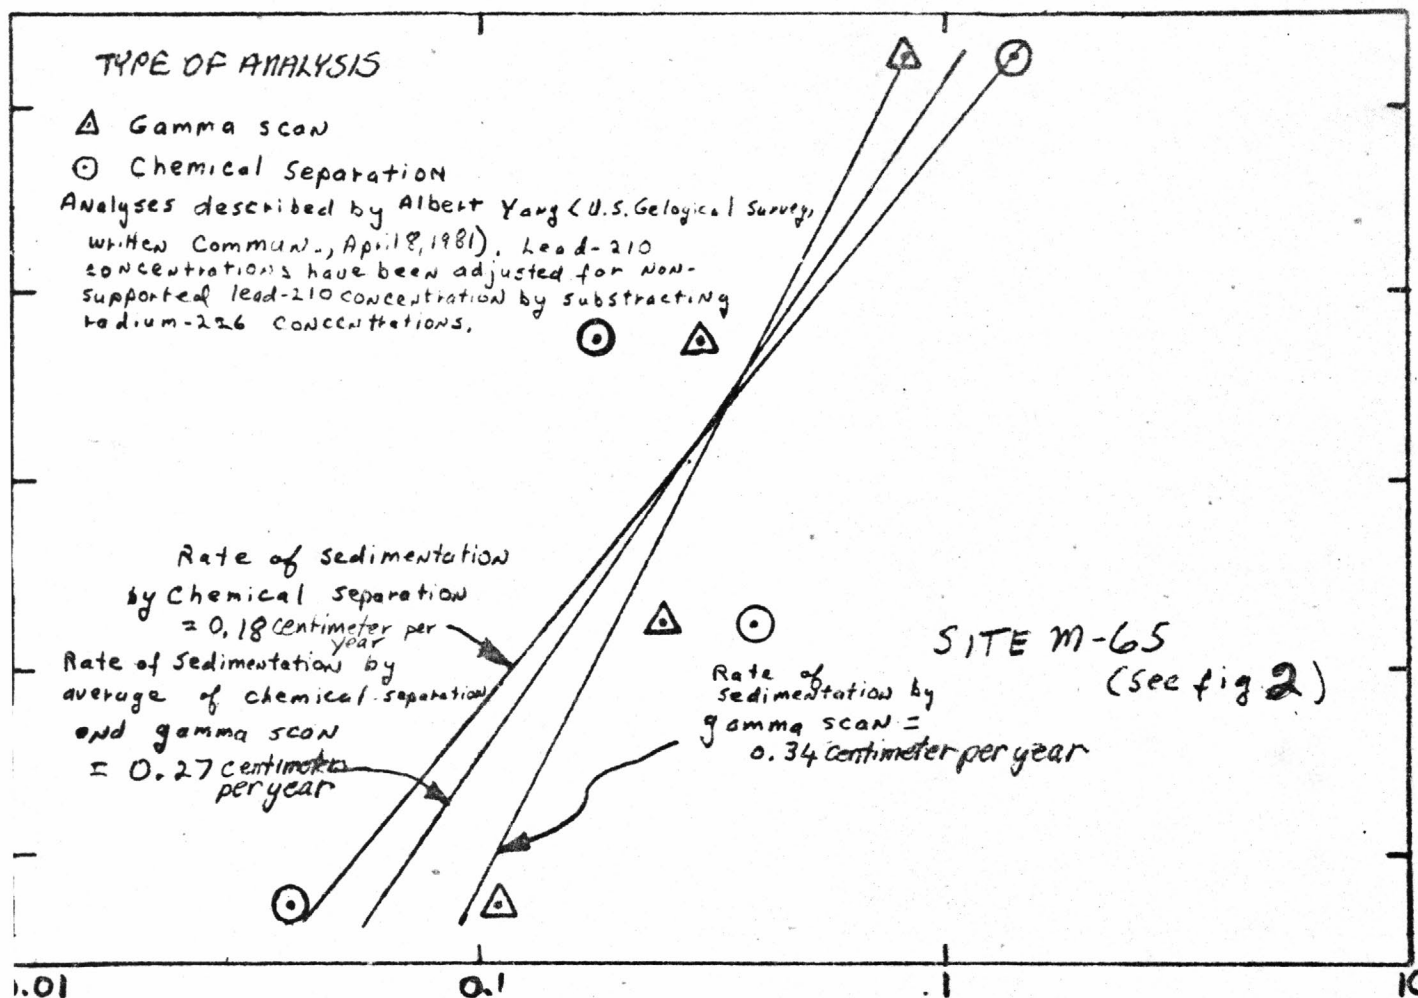 TYPE OF ANALYSIS
Gamma scan
Chemical Separation
Analyses described by Albert Yang (U.S. Gelogical Survey,
written Commun., April 8, 1981). Lead-210
concentrations have been adjusted for non-
supported lead-210 concentration by substracting
radium-226 concentrations.
Rate of sedimentation
by Chemical separation
= 0.18 centimeter per
year
Rate of sedimentation by
average of chemical separation
and gamma scan
= 0.27 centimeters
per year
SITE M-65
(See fig 2)
Rate of
sedimentation by
gamma scan =
0.34 centimeter per year
.01 0.1 .1 10